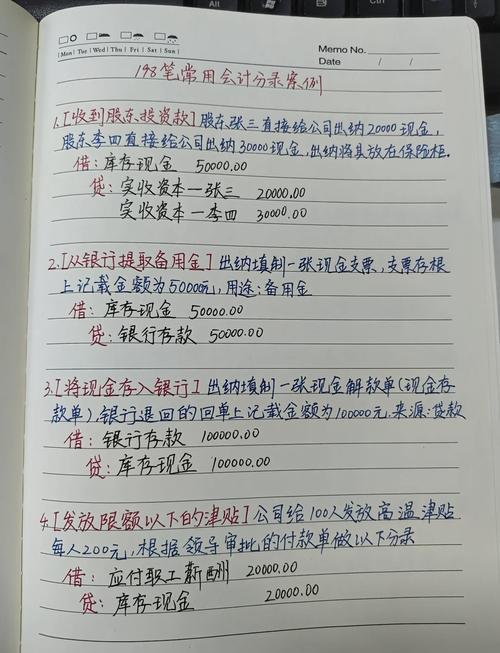 Mon Tue Wed Thu Fri Sat Sun
Memo No.
Date / /
198笔常用会计分录案例
1.[收到股东投资款]股东张三直接给公司出纳20000现金,
股东李四直接给公司出纳30000现金,出纳将其放在保险柜.
借:库存现金 50000.00
贷:实收资本—张三 20000.00
实收资本—李四 30000.00
2.[从银行提取备用金]出纳填制一张现金支票,支票存根
上记载金额为50000元,用途:备用金
借:库存现金 50000.00
贷:银行存款 50000.00
3.[将现金存入银行]出纳填制一张现金解款单(现金存
款单),银行退回的回单上记载金额为100000元,来源:贷款
借:银行存款 100000.00
贷:库存现金 100000.00
4.[发放限额以下的津贴]公司给100人发放高温津贴
每人200元,根据领导审批的付款单做以下分录
借:应付职工薪酬 20000.00
贷:库存现金 20000.00